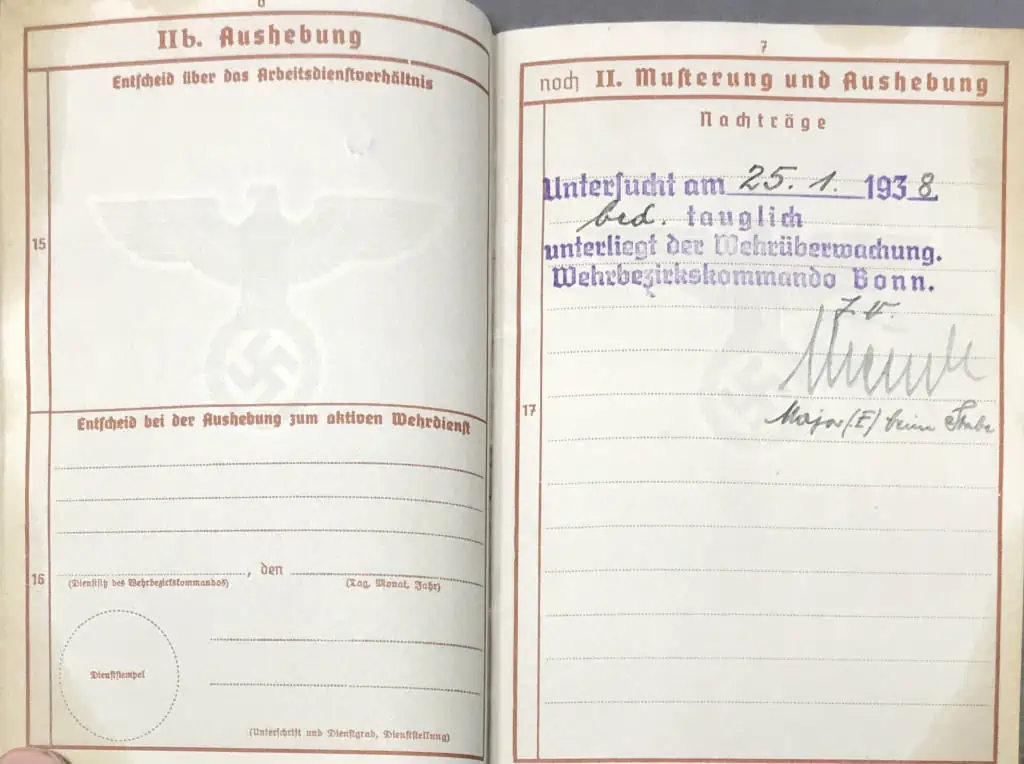 6
IIb. Aushebung
Entscheid über das Arbeitsdienstverhältnis
15
Entscheid bei der Aushebung zum aktiven Wehrdienst
, den
16
(Dienstsitz des Wehrbezirkskommandos) (Tag, Monat, Jahr)
Dienststempel
(Unterschrift und Dienstgrad, Dienststellung)
7
noch II. Musterung und Aushebung
Nachträge
Untersucht am 25. 1. 1938
bed. tauglich
unterliegt der Wehrüberwachung.
Wehrbezirkskommando Bonn.
J. V.
17
Major (E) beim Stabe